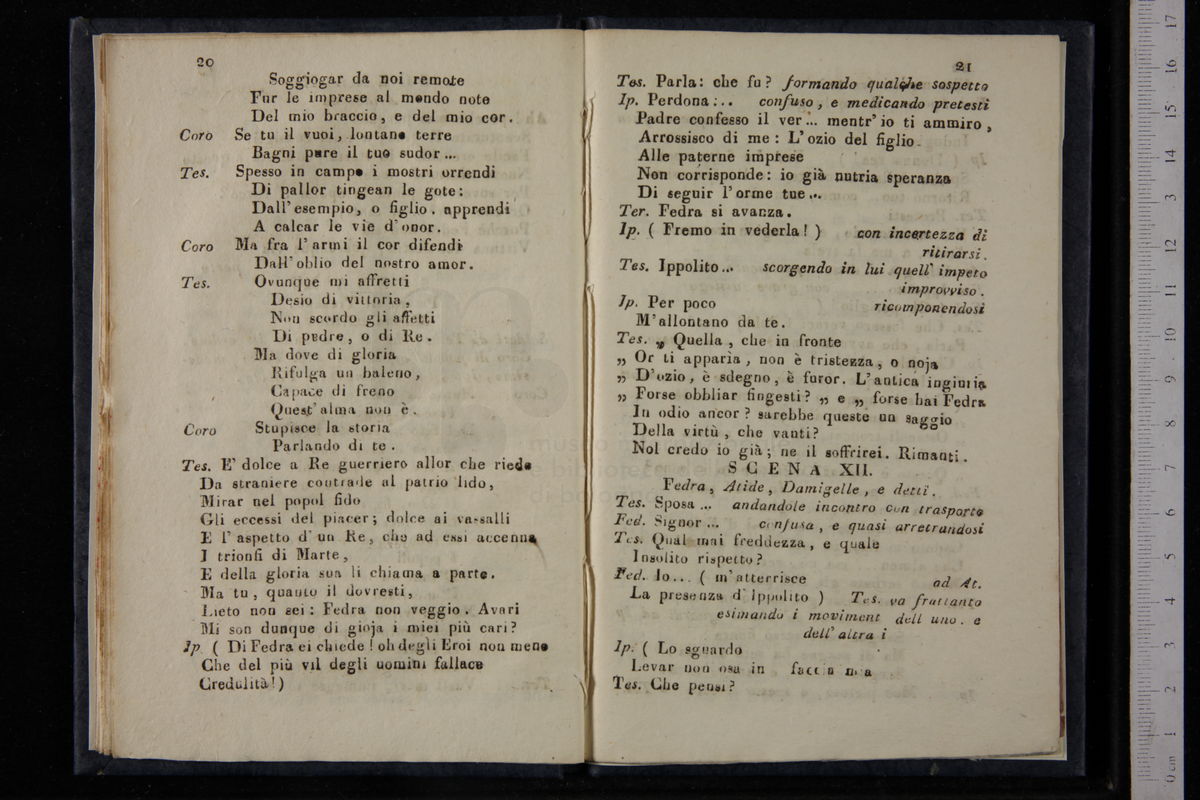 20
Soggiogar da noi remote
Fur le imprese al mondo note
Del mio braccio, e del mio cor.
Coro Se tu il vuoi, lontane terre
Bagni pure il tuo sudor ...
Tes. Spesso in campo i mostri orrendi
Di pallor tingean le gote:
Dall' esempio, o figlio, apprendi
A calcar le vie d'onor.
Coro Ma fra l' armi il cor difendi
Dall' oblio del nostro amor.
Tes. Ovunque mi affretti
Desio di vittoria,
Non scordo gli affetti
Di padre, o di Re.
Ma dove di gloria
Rifulga un baleno,
Capace di freno
Quest' alma non è.
Coro Stupisce la storia
Parlando di te.
Tes. E' dolce a Re guerriero allor che riede
Da straniere contrade al patrio lido,
Mirar nel popol fido
Gli eccessi del piacer; dolce ai vassalli
E l' aspetto d' un Re, che ad essi accenna
I trionfi di Marte,
E della gloria sua li chiama a parte.
Ma tu, quanto il dovresti,
Lieto non sei: Fedra non veggio. Avari
Mi son dunque di gioja i miei più cari?
Ip. ( Di Fedra ei chiede! oh degli Eroi non meno
Che del più vil degli uomini fallace
Credulità!)
21
Tes. Parla: che fu? formando qualche sospetto
Ip. Perdona... confuso, e medicando pretesti
Padre confesso il ver ... mentr' io ti ammiro,
Arrossisco di me: L' ozio del figlio
Alle paterne imprese
Non corrisponde: io già nutria speranza
Di seguir l' orme tue...
Ter. Fedra si avanza.
Ip. ( Fremo in vederla! ) con incertezza di
ritirarsi.
Tes. Ippolito... scorgendo in lui quell' impeto
improvviso.
Ip. Per poco ricomponendosi
M' allontano da te.
Tes. „ Quella, che in fronte
„ Or ti apparìa, non è tristezza, o noja
„ D'ozio, è sdegno, è furor. L' antica ingiuria
„ Forse obbliar fingesti? „ e „ forse hai Fedra
In odio ancor? sarebbe queste un saggio
Della virtù, che vanti?
Nol credo io già; ne il soffrirei. Rimanti.
SCENA XII.
Fedra, Atide, Damigelle, e detti.
Tes. Sposa ... andandole incontro con trasporto
Fed. Signor ... confusa, e quasi arretrandosi
Tes. Qual mai freddezza, e quale
Insolito rispetto?
Fed. Io... ( m' atterrisce ad At.
La presenza d' Ippolito ) Tes. va frattanto
esimando i moviment dell uno. e
dell' altra i
Ip. ( Lo sguardo
Levar non osa in faccia mia
Tes. Che pensi?